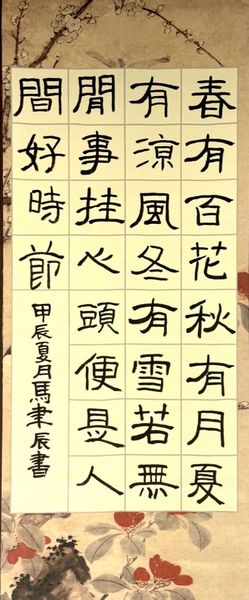 春有百花秋有月夏
有涼風冬有雪若無
閒事挂心頭便是人
間好時節
甲辰夏月馬聿辰書